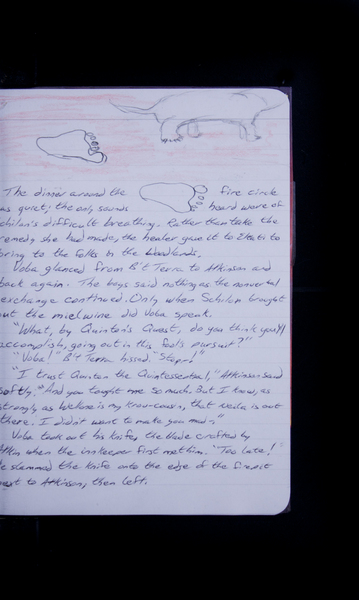 The dinner around the fire circle
as quiet; the only sounds heard were of
chilon's difficult breathing. Rather than take the
remedy she had made, the healer gave it to Ekati to
bring to the folks in the Woodlands.
Voba glanced from B't Terra to Atkinson and
back again. The boys said nothing as the nonverbal
exchange continued. Only when Schilon brought
out the mielwine did Voba speak.
"What, by Quinton's Quest, do you think you'll
accomplish, going out in this fool's pursuit?"
"Voba!" B't Terra hissed. "Stop!"
"I trust Quinton the Quintessential," Atkinson said
softly. "And you taught me so much. But I know, as
strongly as is my know-cousin, that is out
there. I didn't want to make you mad."
Voba took out his knife, the blade crafted by
Atkin when the innkeeper first met him. "Too late!"
e slammed the knife onto the edge of the firepit
next to Atkinson, then left.